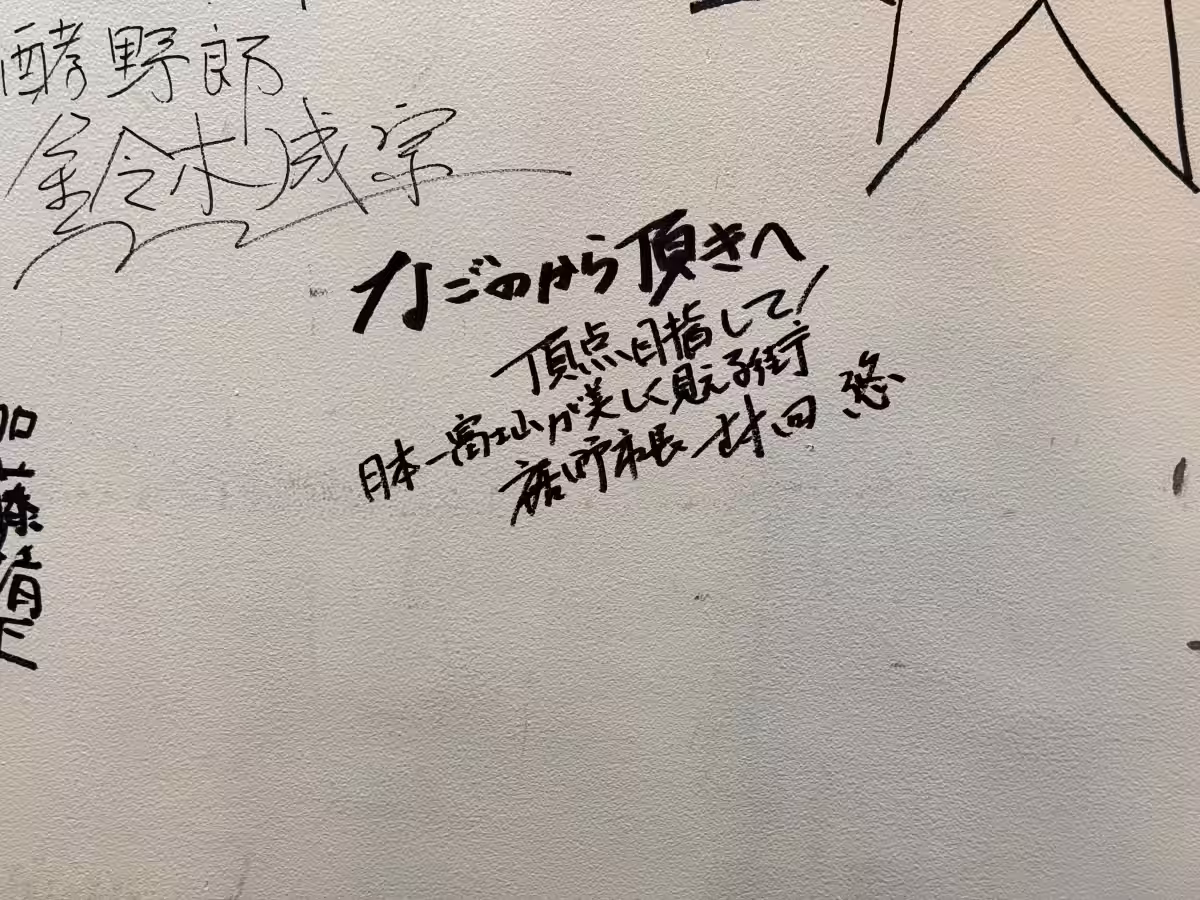 酵野郎
鈴木成宗
すごのから頂きへ
頂点目指して!
日本一富士山が美しく見える街
裾野市長 村田 悠
加藤清